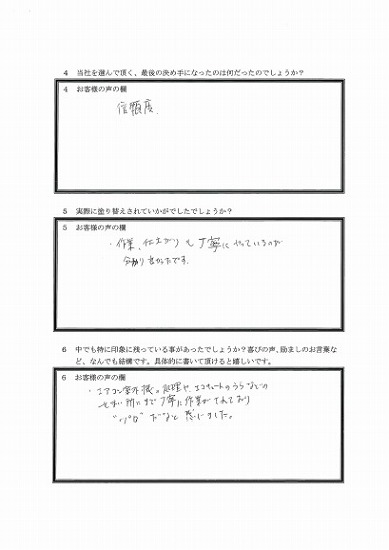 4 当社を選んで頂く、最後の決め手になったのは何だったのでしょうか？
4 お客様の声の欄
信頼度.
5 実際に塗り替えされていかがでしたでしょうか？
5 お客様の声の欄
・作業、仕上がりも丁寧にやっているのが
分かり良かったです.
6 中でも特に印象に残っている事があったでしょうか？喜びの声、励ましのお言葉な
ど、なんでも結構です。具体的に書いて頂けると嬉しいです。
6 お客様の声の欄
・エアコン室外機の処理や、エコキュートのうらなどの
せまい所にまで丁寧に作業がされており
"プロ"だなと感じました。